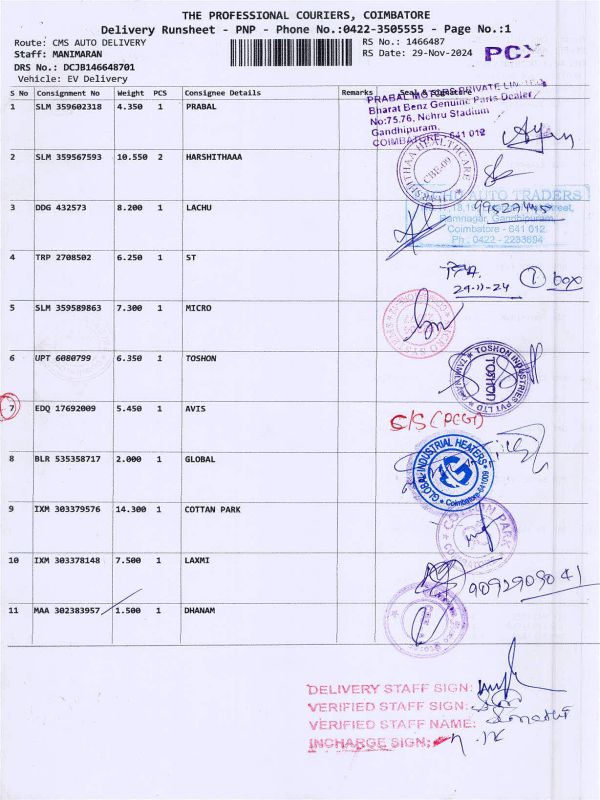 THE PROFESSIONAL COURIERS, COIMBATORE
Delivery Runsheet - PNP - Phone No.:0422-3505555 - Page No.:1
Route: CMS AUTO DELIVERY RS No.: 1466487
Staff: MANIMARAN RS Date: 29-Nov-2024 PCX
DRS No.: DCJB146648701
Vehicle: EV Delivery
S No Consignment No Weight PCS Consignee Details Remarks Seal & Signature
1 SLM 359602318 4.350 1 PRABAL
PRABAL MOTORS PRIVATE LIMITED
Bharat Benz Genuine Parts Dealer
No:75,76, Nehru Stadium
Gandhipuram,
COIMBATORE - 641 012
2 SLM 359567593 10.550 2 HARSHITHAAA
HEALTHCARE
CBE-09
3 DDG 432573 8.200 1 LACHU
AUTO TRADERS
Ramnagar, Gandhipuram
Coimbatore - 641 012.
Ph : 0422 - 2233694
4 TRP 2708502 6.250 1 ST
29-11-24 1 box
5 SLM 359589863 7.300 1 MICRO
6 UPT 6080799 6.350 1 TOSHON
TOSHON INDUSTRIES PVT LTD
TOSHON
7 EDQ 17692009 5.450 1 AVIS
8 BLR 535358717 2.000 1 GLOBAL
GLOBAL INDUSTRIAL HEATERS
Coimbatore-641009
9 IXM 303379576 14.300 1 COTTAN PARK
PARK
10 IXM 303378148 7.500 1 LAXMI
9092909041
11 MAA 302383957 1.500 1 DHANAM
DELIVERY STAFF SIGN:
VERIFIED STAFF SIGN:
VERIFIED STAFF NAME:
INCHARGE SIGN: